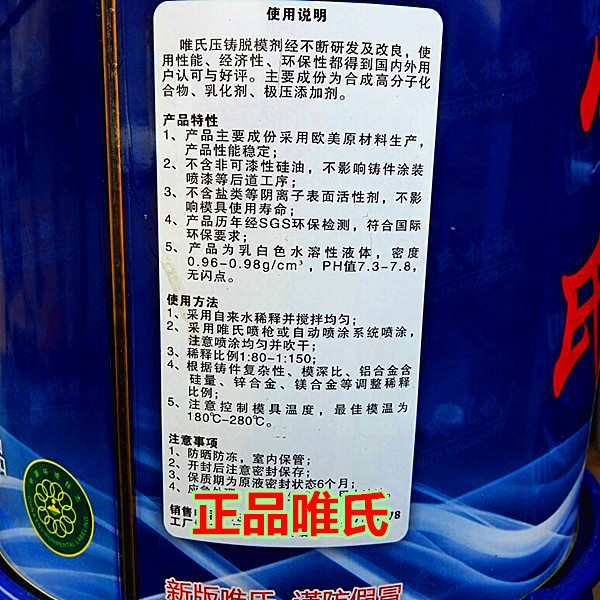 使用说明
唯氏压铸脱模剂经不断研发及改良，使
用性能、经济性、环保性都得到国内外用
户认可与好评。主要成份为合成高分子化
合物、乳化剂、极压添加剂。
产品特性
1、产品主要成份采用欧美原材料生产，
产品性能稳定；
2、不含非可漆性硅油，不影响铸件涂装
喷漆等后道工序；
3、不含盐类等阴离子表面活性剂，不影
响模具使用寿命；
4、产品历年经SGS环保检测，符合国际
环保要求；
5、产品为乳白色水溶性液体，密度
0.96-0.98g/cm³，PH值7.3-7.8，
无闪点。
使用方法
1、采用自来水稀释并搅拌均匀；
2、采用唯氏喷枪或自动喷涂系统喷涂，
注意喷涂均匀并吹干；
3、稀释比例1:80-1:150；
4、根据铸件复杂性、模深比、铝合金含
硅量、锌合金、镁合金等调整稀释
比例；
5、注意控制模具温度，最佳模温为
180℃-280℃。
注意事项
1、防晒防冻，室内保管；
2、开封后注意密封保存；
3、保质期为原液密封状态6个月；
4、应急处理
销售
工厂
78
正品唯氏
新版唯氏 谨防假冒